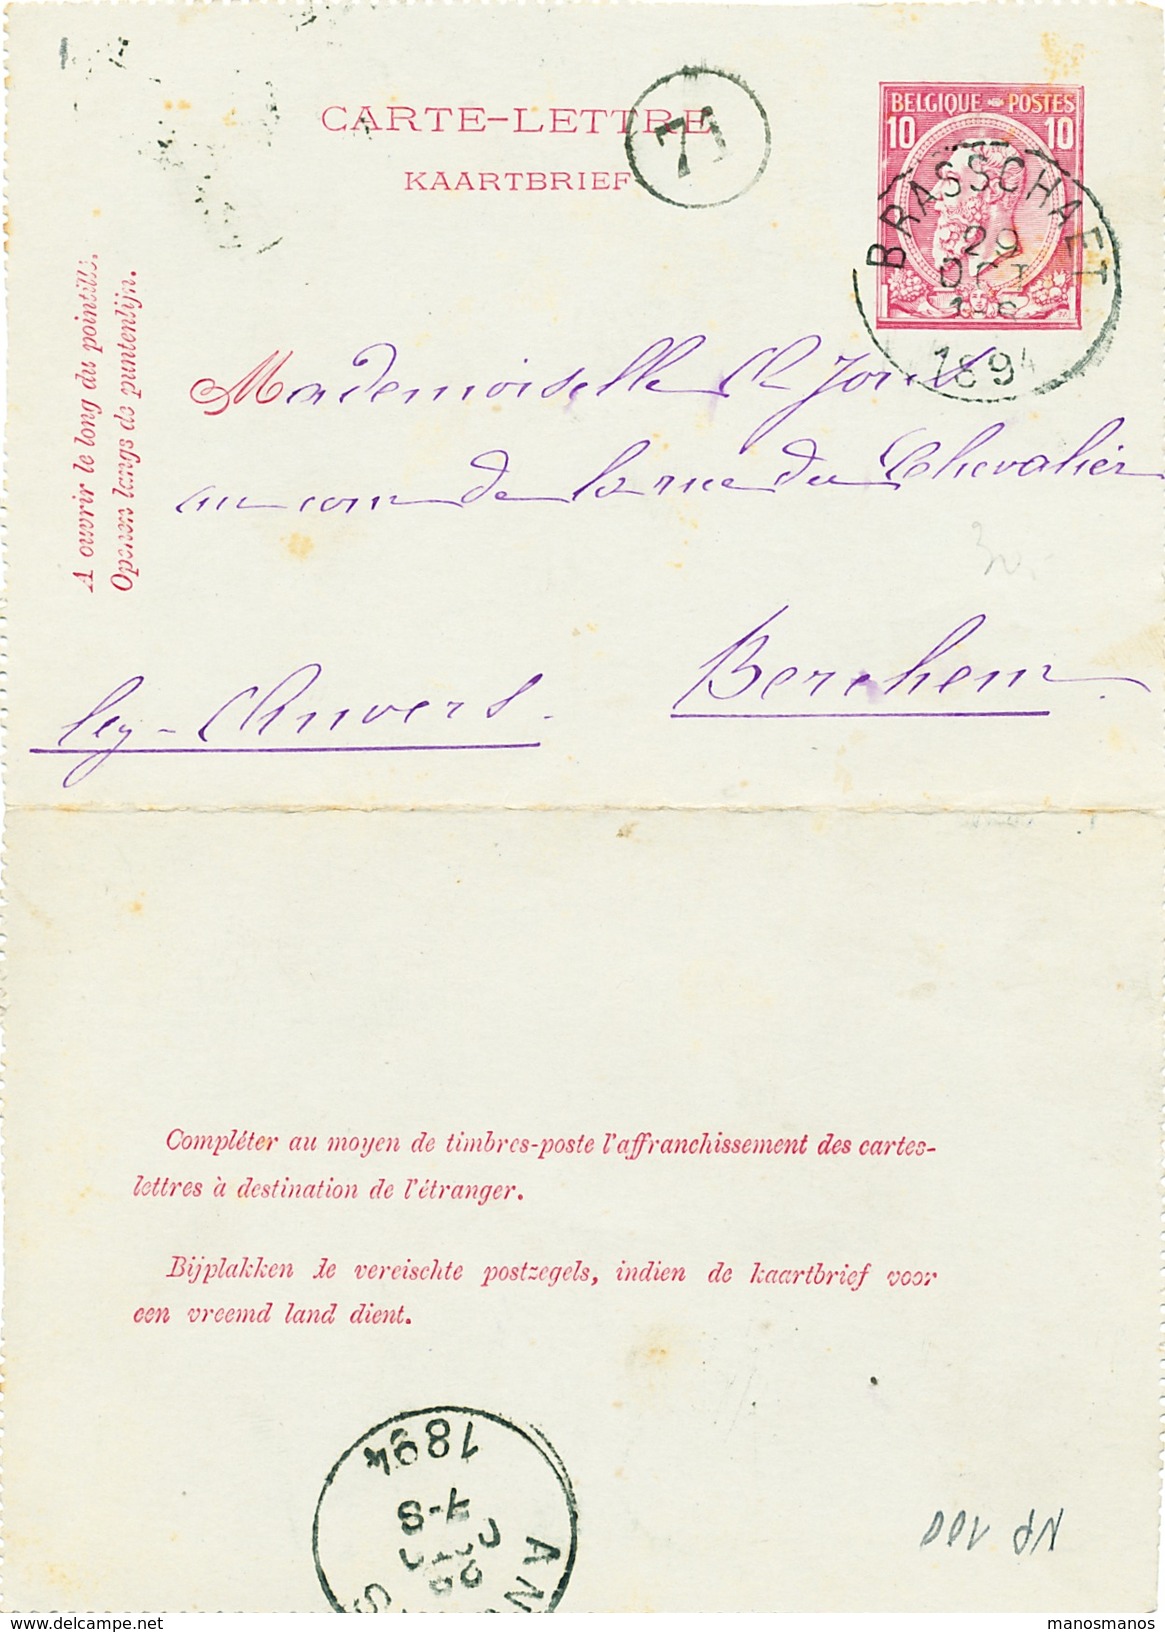 CARTE-LETTRE
KAARTBRIEF
71
BELGIQUE POSTES
10 10
BRASSCHAET
29
OCT
1894
A ouvrir le long du pointillé.
Openen langs de puntenlijn.
Mademoiselle
de la rue du Chevalier
30.-
Berchem
ley - Anvers.
Compléter au moyen de timbres-poste l'affranchissement des cartes-
lettres à destination de l'étranger.
Bijplakken de vereischte postzegels, indien de kaartbrief voor
een vreemd land dient.
1894
7-8
OCT
29
AN S
NP 100
www.delcampe.net
manosmanos